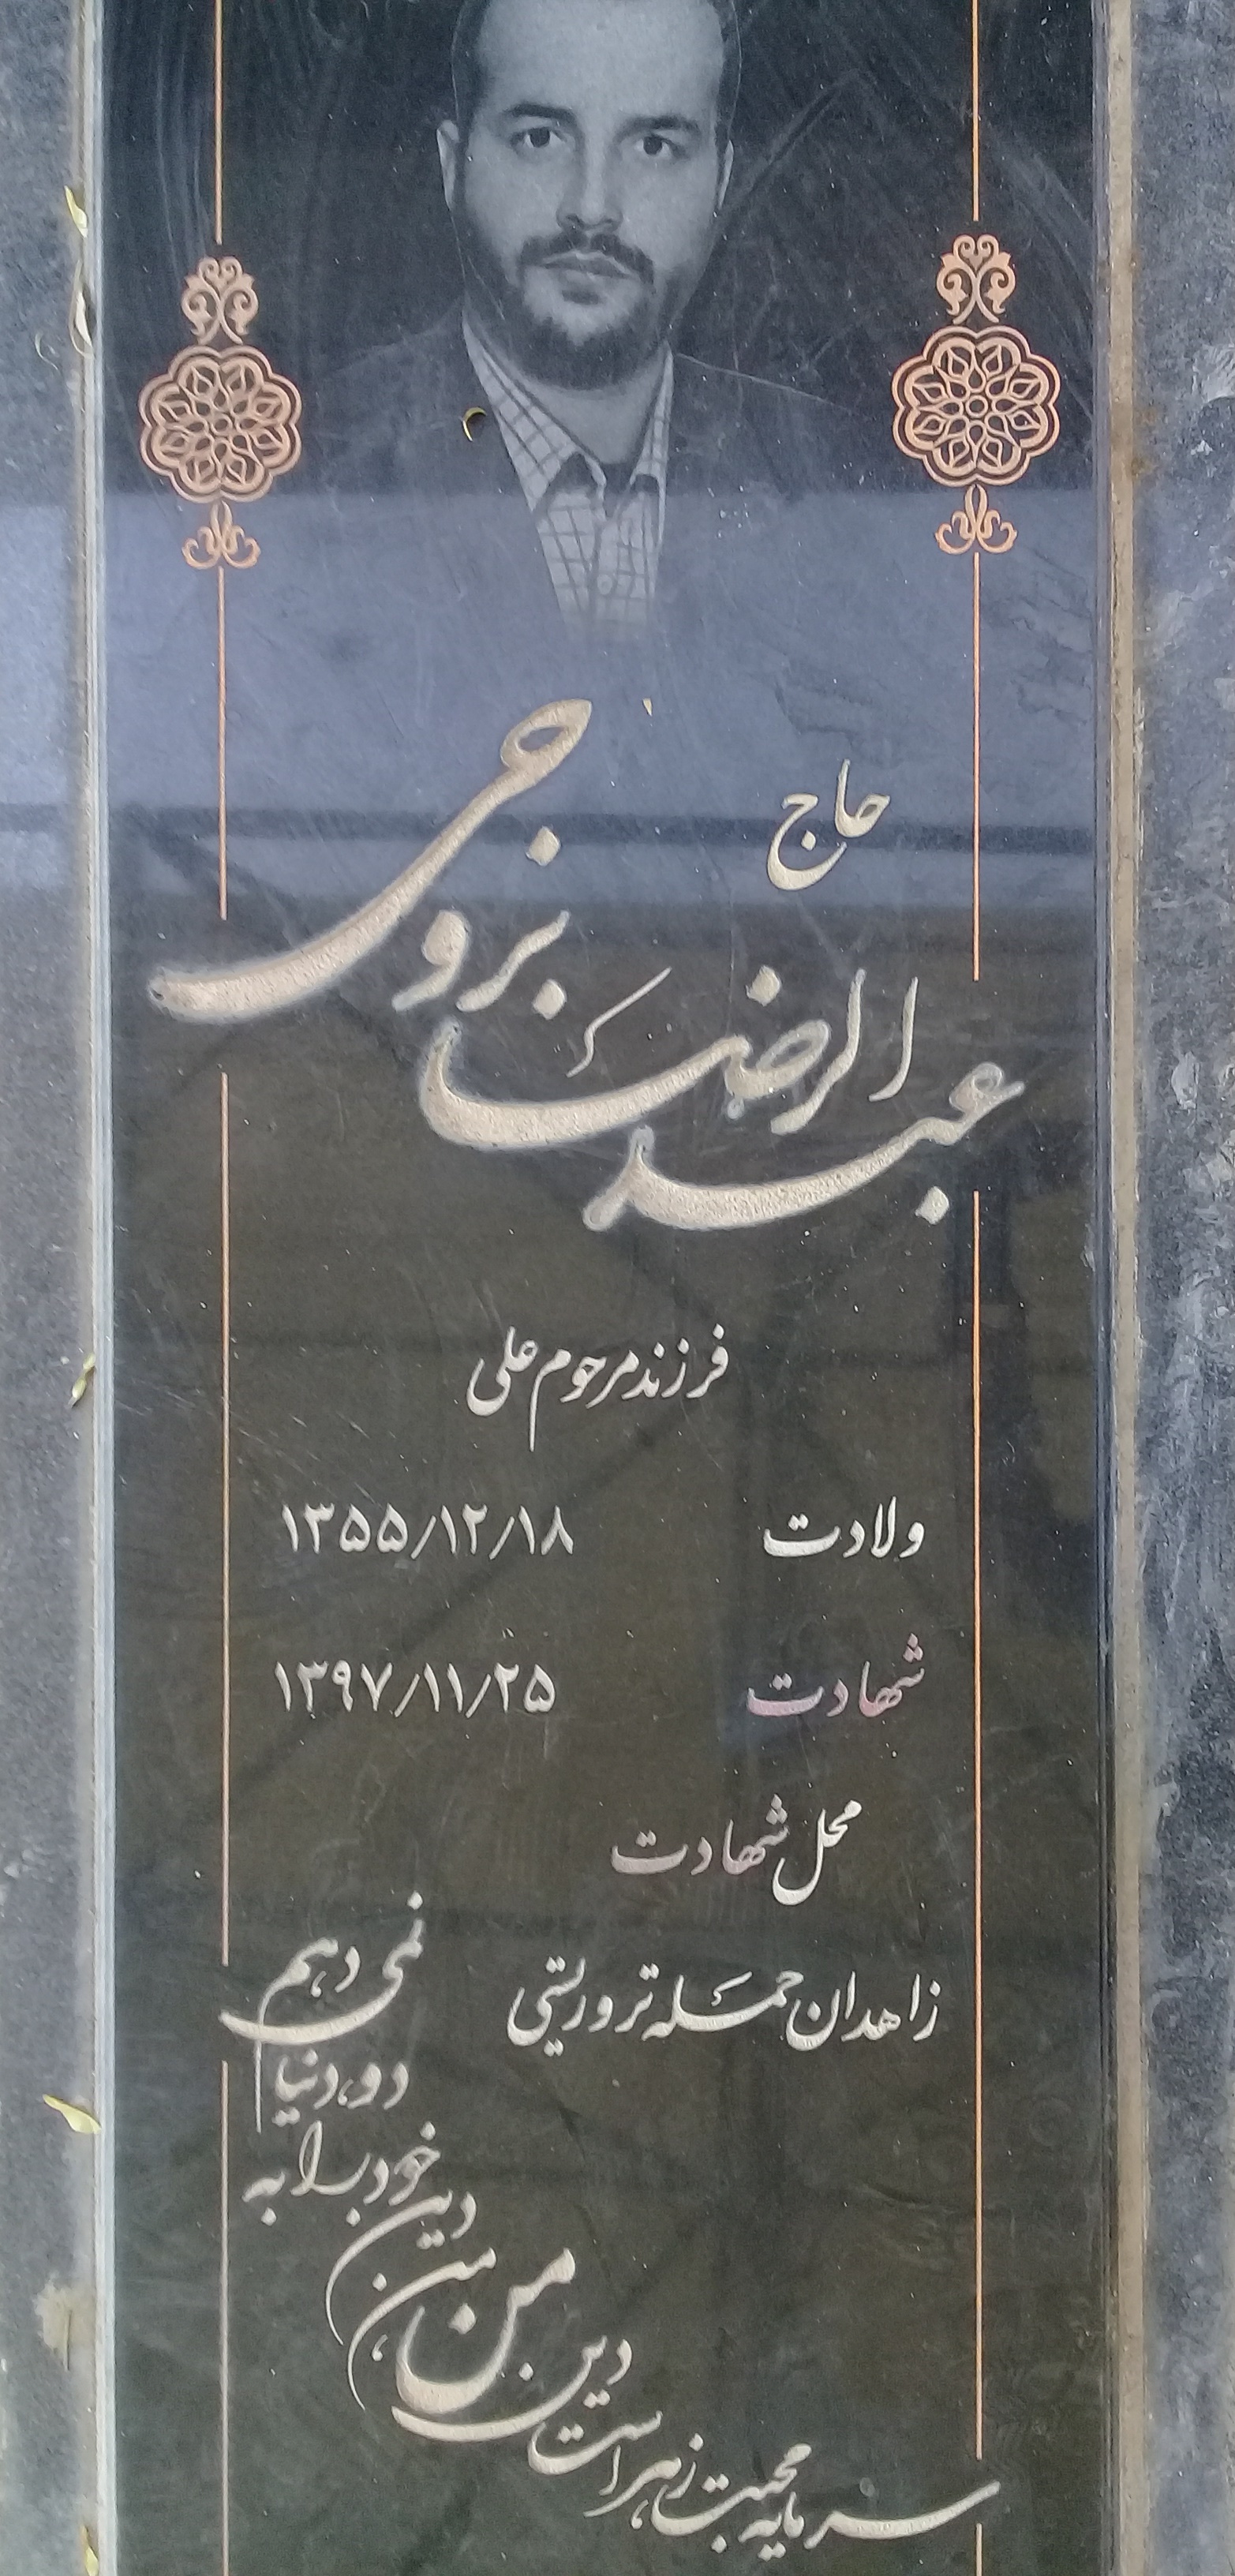 حاج
عبدالرضا بروجی
فرزند مرحوم علی
ولادت ۱۳۵۵/۱۲/۱۸
شهادت ۱۳۹۷/۱۱/۲۵
محل شهادت
زاهدان حمله تروریستی
سرمایه محبت زهراست دین من
من دین خود را به دو دنیا نمی دهم